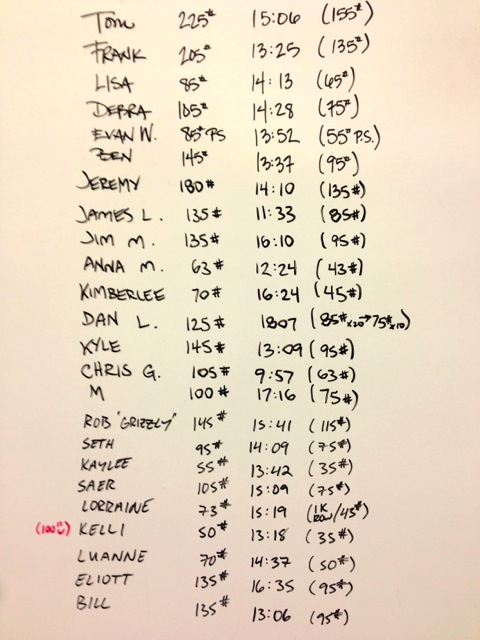 Tom 225# 15:06 (155#)
FRANK 205# 13:25 (135#)
LISA 85# 14:13 (65#)
DEBRA 105# 14:28 (75#)
EVAN W. 85# PS 13:52 (55# P.S.)
ZEN 145# 13:37 (95#)
JEREMY 180# 14:10 (135#)
JAMES L. 135# 11:33 (85#)
JIM M. 135# 16:10 (95#)
ANNA M. 63# 12:24 (43#)
KIMBERLEE 70# 16:24 (45#)
DAN L. 125# 1807 (85#x20→75#x10)
KYLE 145# 13:09 (95#)
CHRIS G. 105# 9:57 (63#)
M 100# 17:16 (75#)
ROB "GRIZZLY" 145# 15:41 (115#)
SETH 95# 14:09 (75#)
KAYLEE 55# 13:42 (35#)
SAER 105# 15:09 (75#)
LORRAINE 73# 15:19 (1K ROW/45#)
(100 ) KELLI 50# 13:18 (35#)
LUANNE 70# 14:37 (50#)
ELIOTT 135# 16:35 (95#)
BILL 135# 13:06 (95#)